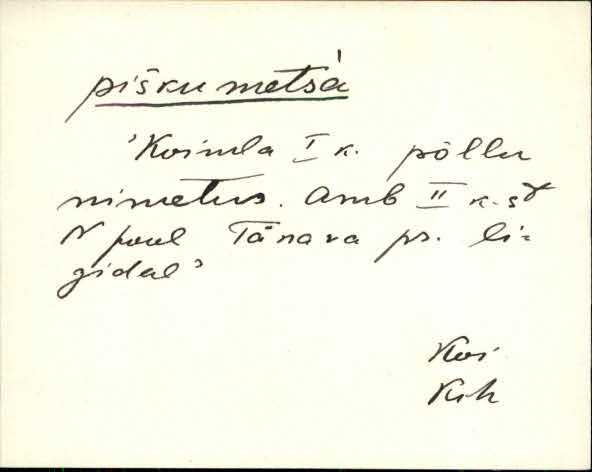 piškumetsà
'Koimla I k. põllu
nimetus. Amb II k.-st
N pool Tänava ps. li-
gidal'
Koi
Krk